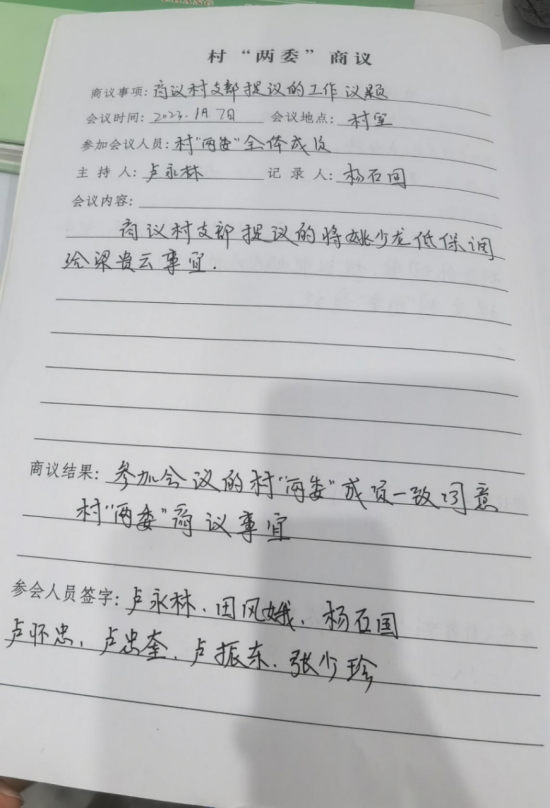 村“两委”商议
商议事项: 商议村支部提议的工作议题
会议时间: 2023.1月7日 会议地点: 村室
参加会议人员: 村“两委”全体成员
主持人: 卢永林 记录人: 杨石国
会议内容:
商议村支部提议的将姚少龙低保调
给梁贵云事宜.
商议结果: 参加会议的村“两委”成员一致同意
村“两委”商议事宜
参会人员签字: 卢永林、田风娥、杨石国
卢怀忠、卢忠奎、卢振东、张少珍